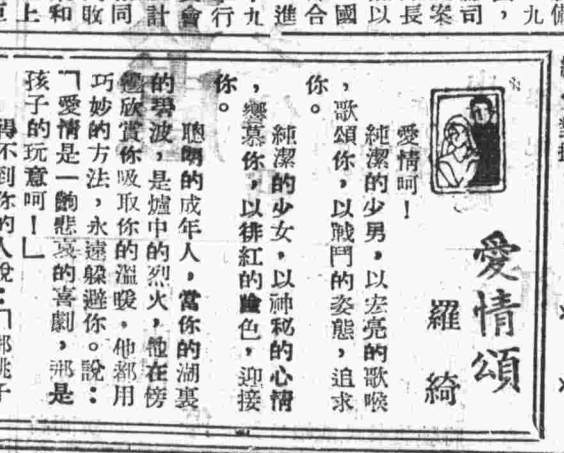 愛情頌
羅綺
愛情呵！
純潔的少男，以宏亮的歌喉
，歌頌你，以戰鬥的姿態，追求
你。
純潔的少女，以神秘的心情
，嚮慕你，以徘紅的臉色，迎接
你。
聰明的成年人，當你的湖裏
的碧波，是爐中的烈火，他在傍
邊欣賞你吸取你的溫暖，他都用
巧妙的方法，永遠躲避你。說：
「愛情是一齣悲哀的喜劇，那是
孩子的玩意呵！」
得不到你的人說：「那桃子